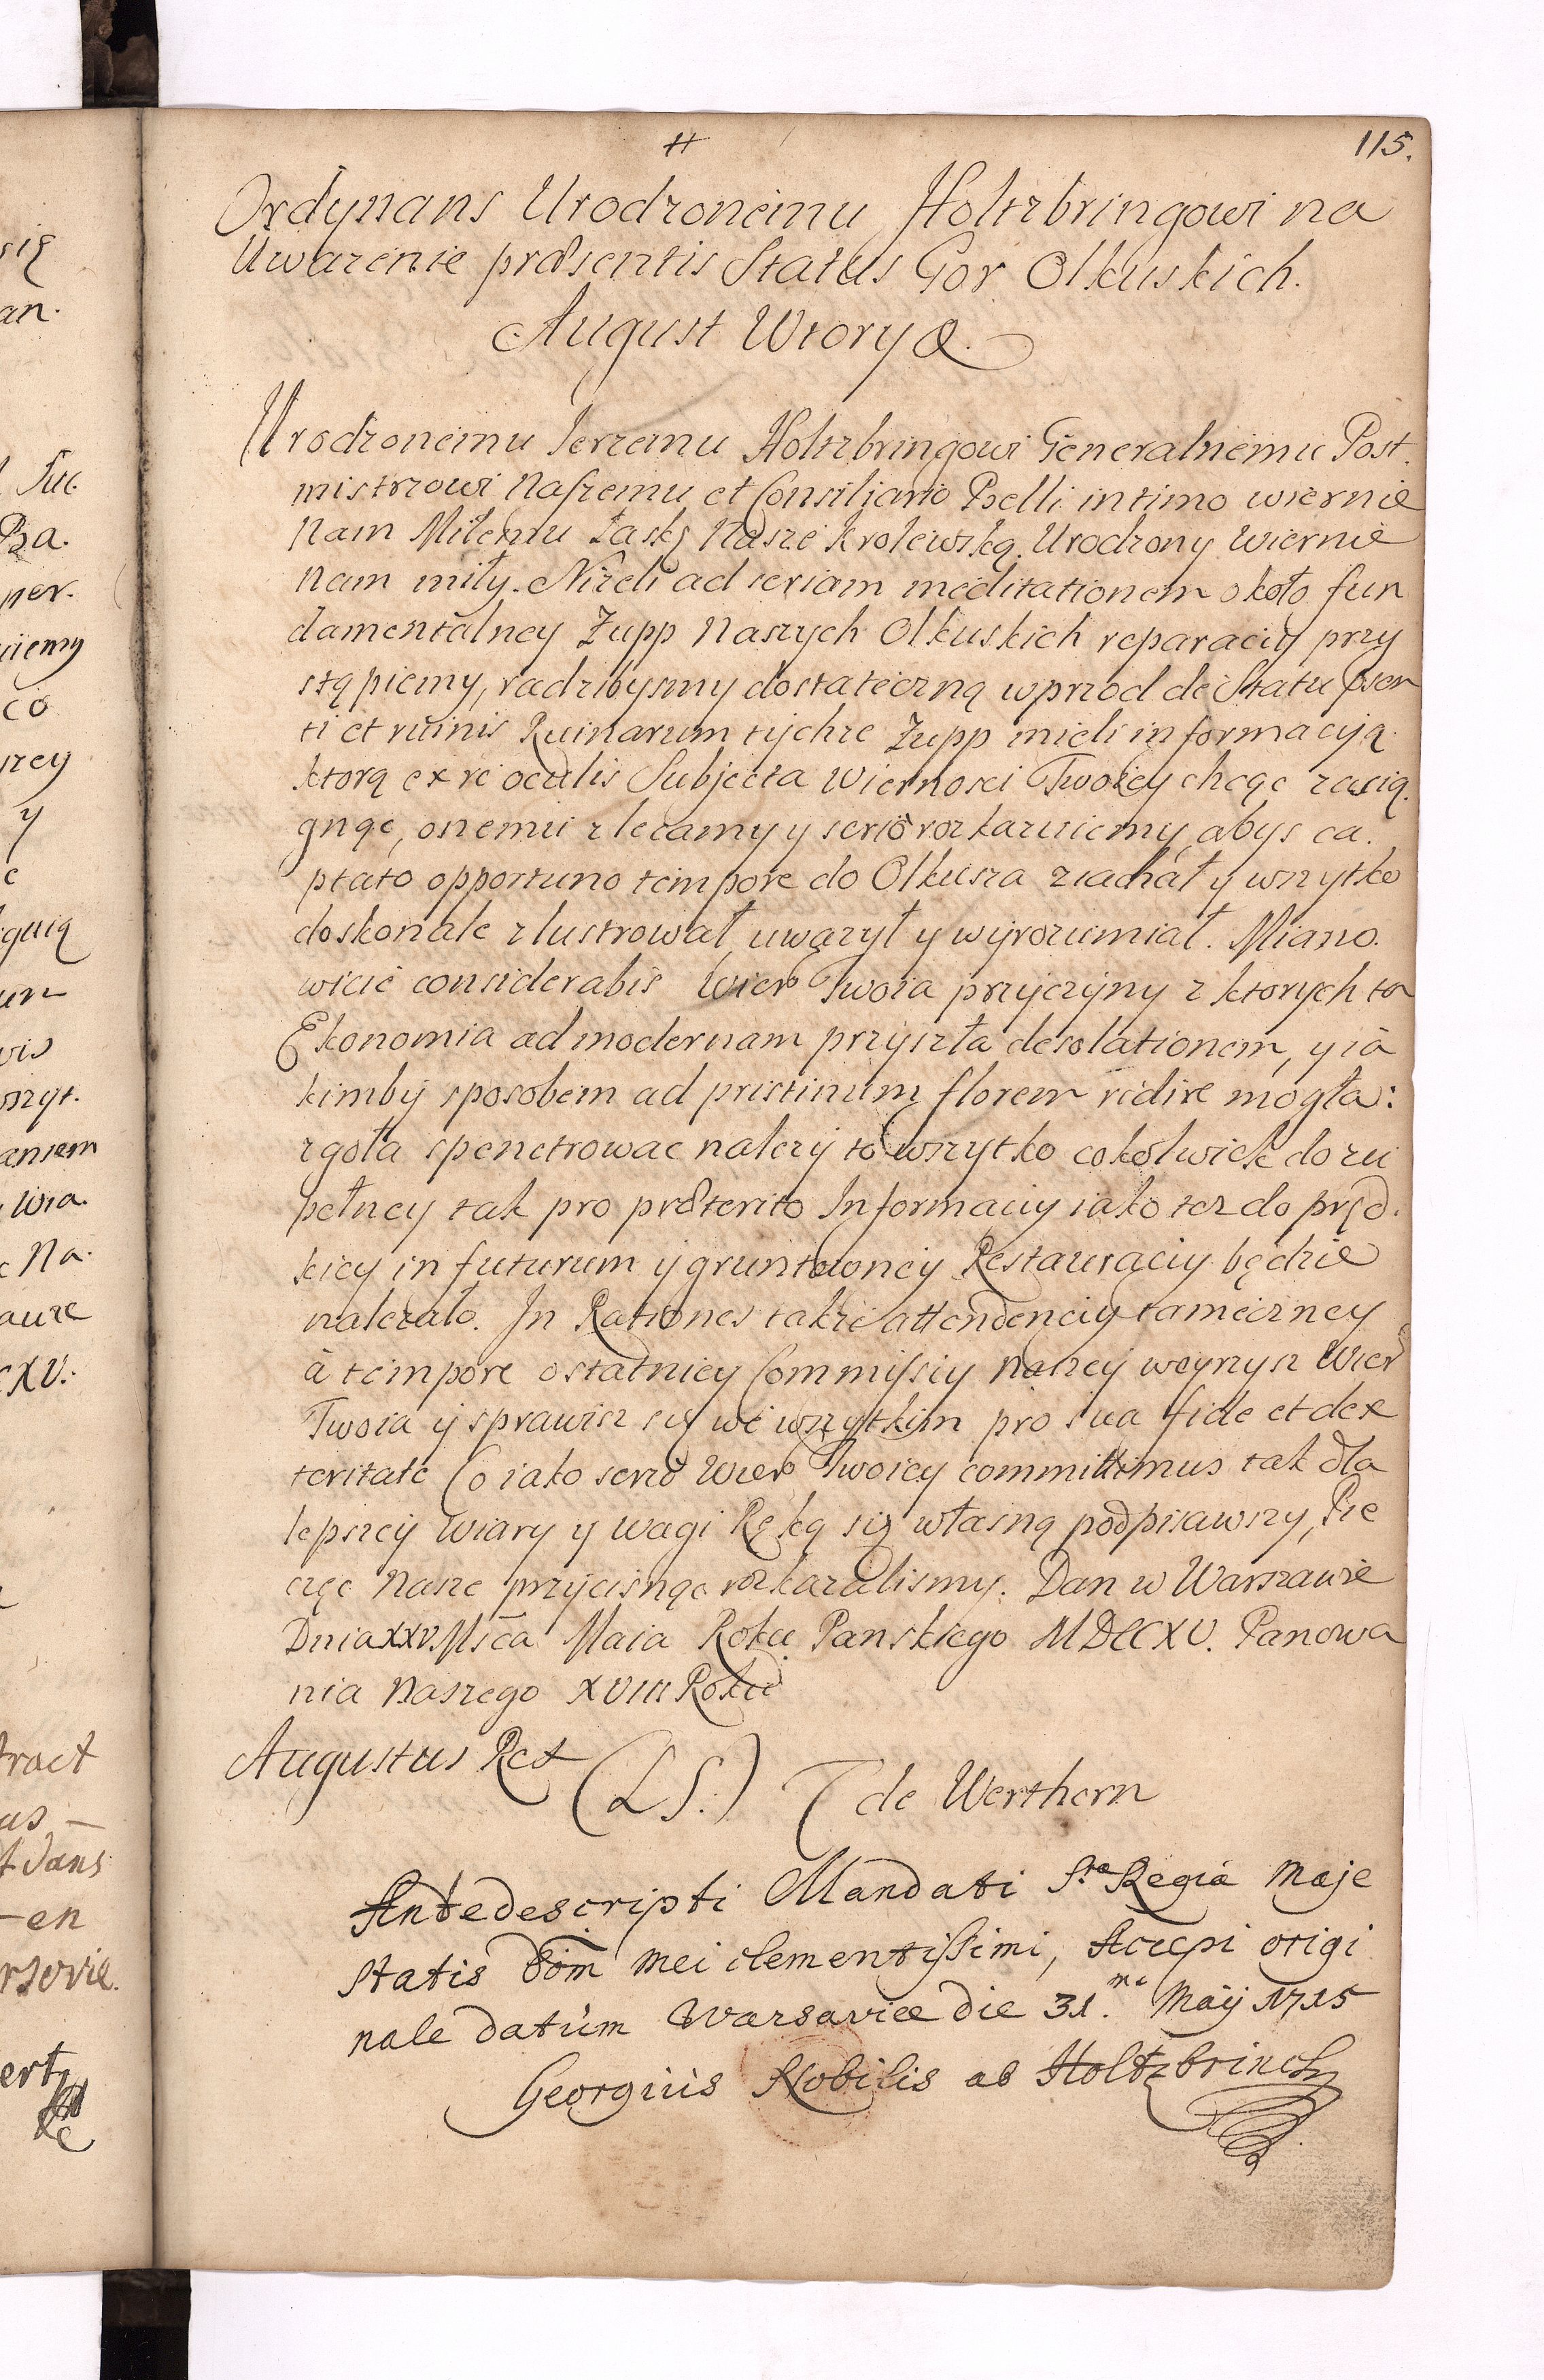 115.
Ordynans Urodzonemu Holtzbringowi na
Uwazenie præsentis Status Gor Olkuskich.
August Wtory &.
Urodzonemu Jerzemu Holtzbringowi Generalnemu Post.
mistrzowi Naszemu et Consiliario Belli intimo wiernie
Nam Miłemu Łaskę Nasze krolewską. Urodzony Wiernie
Nam miły. Niżeli ad seriam meditationem około fun
damentalney Zupp Naszych Olkuskich reparaciy przy
stąpiemy, radzibysmy dostateczną wprzod de Statu psen
ti et ruinis Ruinarum tychze Zupp mieli informacyą
ktorą ex re oculis Subjecta Wiernosci Twoiey chcąc zasią.
gnąc, onemu zlecamy y seriò rozkazuiemy, abys ca.
ptato opportuno tempore do Olkusza ziachał y wszytko
doskonale zlustrował, uwazył y wyrozumiał. Miano.
wicie considerabis Wier Twoia przyczyny z ktorych ta
Ekonomia ad modernam przyszła desolationem, y ia
kimby sposobem ad pristinum florem redire mogła:
zgoła spenetrowac nalezy to wszytko cokolwiek do zu
pełney tak pro præterito Informaciy iako tez do pręd.
kiey in futurum y gruntowney Restauraciy będzie
nalezało. In Rationes takze attendenciy tameczney
à tempore ostatniey Commissiy Naszey weyrzysz Wier
Twoia y sprawisz się we wszytkim pro sua fide et dex
teritate Co iako seriò Wier Twoiey committimus tak dla
lepszey Wiary y wagi Ręką się własną podpisawszy, Pie
częc Nasze przycisnąc rozkazalismy. Dan w Warszawie
Dnia XXV. Msca Maia Roku Panskiego MDCCXV. Panowa
nia Naszego XVIII Roku
Augustus Rex (LS.) T de Werthern
Antedescripti Mandati S.ræ Regiæ Maje
statis Dom̃ mei clementissimi, Accepi origi
nale datùm Warsaviæ die 31.ma Maÿ 1715
Georgius Nobilis ab Holtzbrinck
się
an.
per.
uiemy
co
rzey
y
un
wszyt.
aniem
Na.
cXV.
tract
us
t dans
en
ert